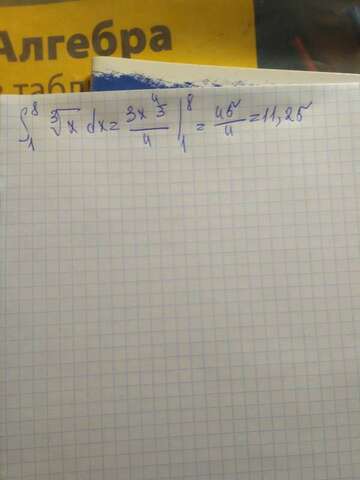 Алгебра
в табл
∫₁⁸ ∛x dx = 3x^(4/3)/4 |₁⁸ = 45/4 = 11,25